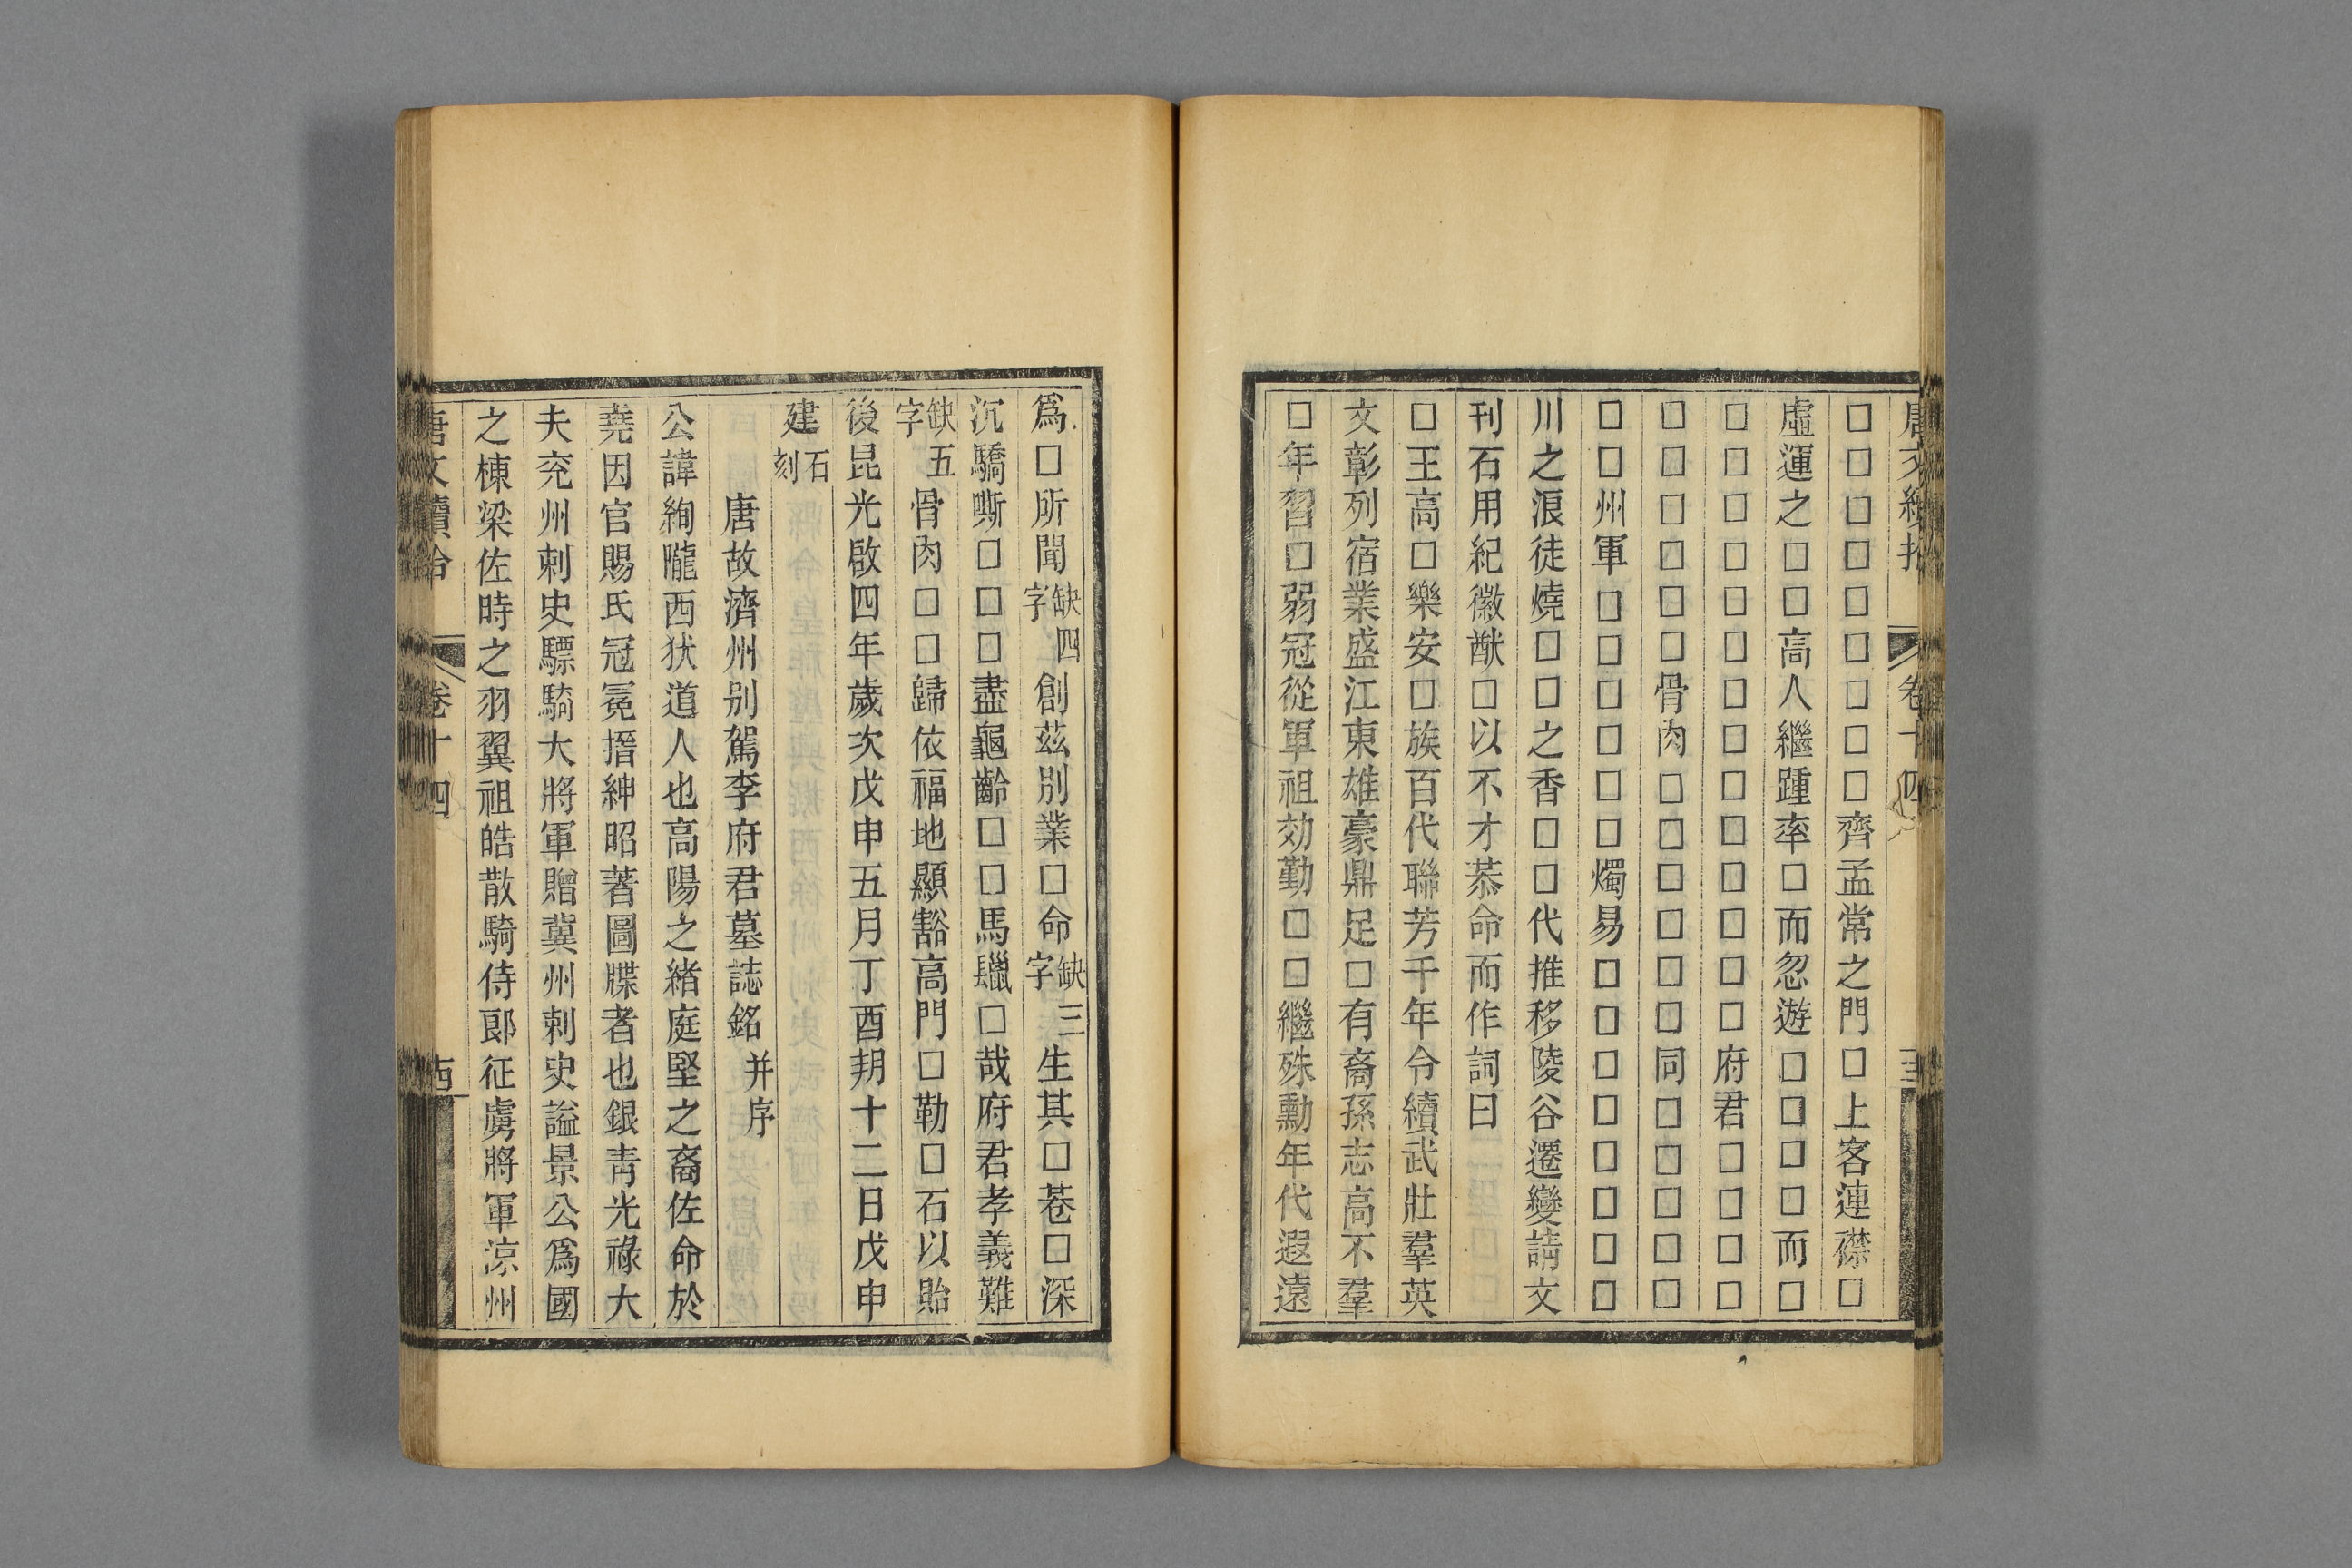 □□□□□□□□□齊孟常之門□上客連襟□
虛運之□□高人繼踵率□而忽遊□□□□而□
□□□□□□□□□□□□□□府君□□□□
□□□□□□骨肉□□□□□□同□□□□□
□□州軍□□□□□□燭易□□□□□□□□
川之浪徒燒□□之香□□代推移陵谷遷變請文
刊石用紀徽猷□以不才恭命而作詞曰
□王高□樂安□族百代聯芳千年令續武壯羣英
文彰列宿業盛江東雄豪鼎足□有裔孫志高不羣
□年習□弱冠從軍祖効勤□□繼殊勳年代遐遠
爲□所聞缺四字創茲別業□命缺三字生其□巷□深
沉驕嘶□□□盡龜齡□□馬鬣□哉府君孝義難
缺五字骨肉□□歸依福地顯豁高門□勒□石以貽
後昆光啟四年歲次戊申五月丁酉朔十二日戊申
建石刻
唐故濟州别駕李府君墓誌銘并序
公諱絢隴西狄道人也高陽之緒庭堅之裔佐命於
堯因官賜氏冠冕搢紳昭著圖牒者也銀青光祿大
夫兖州刺史驃騎大將軍贈冀州刺史謚景公爲國
之棟梁佐時之羽翼祖皓散騎侍郎征虜將軍涼州
卷十四